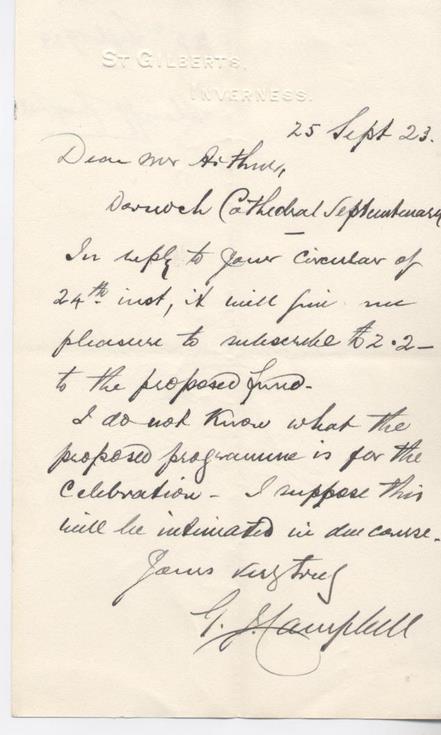 St Gilberts,
Inverness.
25 Sept 23.
Dear Mr Arthur,
Dornoch Cathedral Septcentenary
In reply to your circular of
24th inst, it will give me
pleasure to subscribe £2.2–
to the proposed fund.
I do not know what the
proposed programme is for the
celebration – I suppose this
will be intimated in due course.
Yours very truly
G. J. Campbell